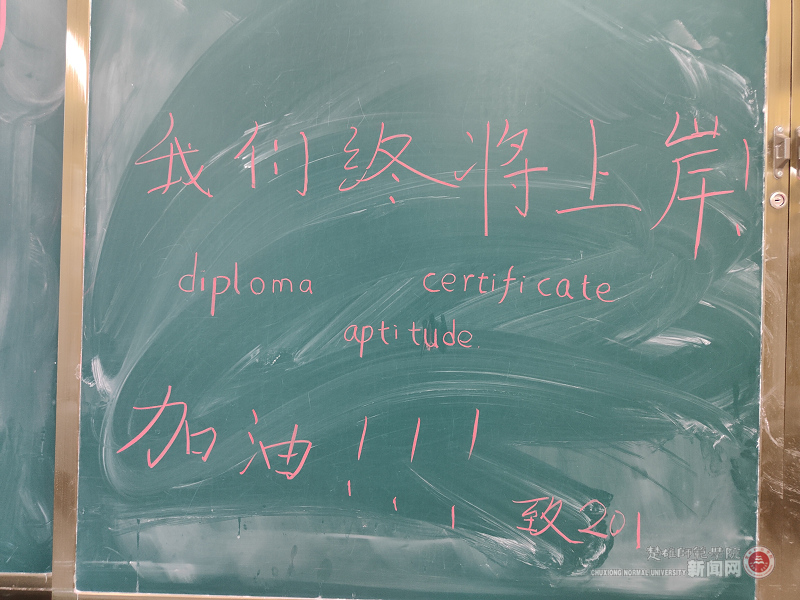 我们终将上岸!
diploma certificate
aptitude.
加油!!!
致201
楚雄师范学院
CHUXIONG NORMAL UNIVERSITY 新闻网